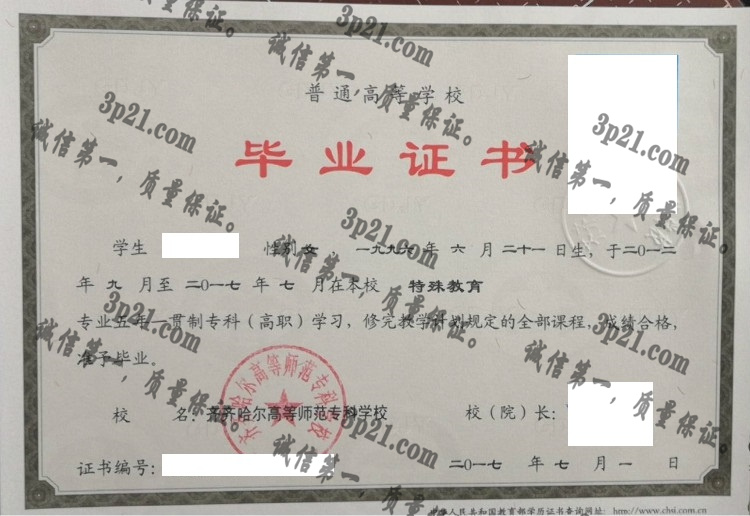 普通高等学校
毕业证书
学生 性别 女 , 一九九六年 六 月 二十一 日生, 于二〇一二
年 九 月至 二〇一七 年 七 月在本校 特殊教育
专业五年一贯制专科(高职)学习, 修完教学计划规定的全部课程, 成绩合格,
准予毕业。
校 名: 齐齐哈尔高等师范专科学校 校(院)长:
证书编号: 二〇一七 年 七 月 一 日
中华人民共和国教育部学历证书查询网址: http://www.chsi.com.cn
齐齐哈尔高等师范专科学校
3p21.com
诚信第一,质量保证。
3p21.com
诚信第一,质量保证。
3p21.com
诚信第一,质量保证。
3p21.com
诚信第一,质量保证。
3p21.com
诚信第一,质量保证。
3p21.com
诚信第一,质量保证。
3p21.com
诚信第一,质量保证。